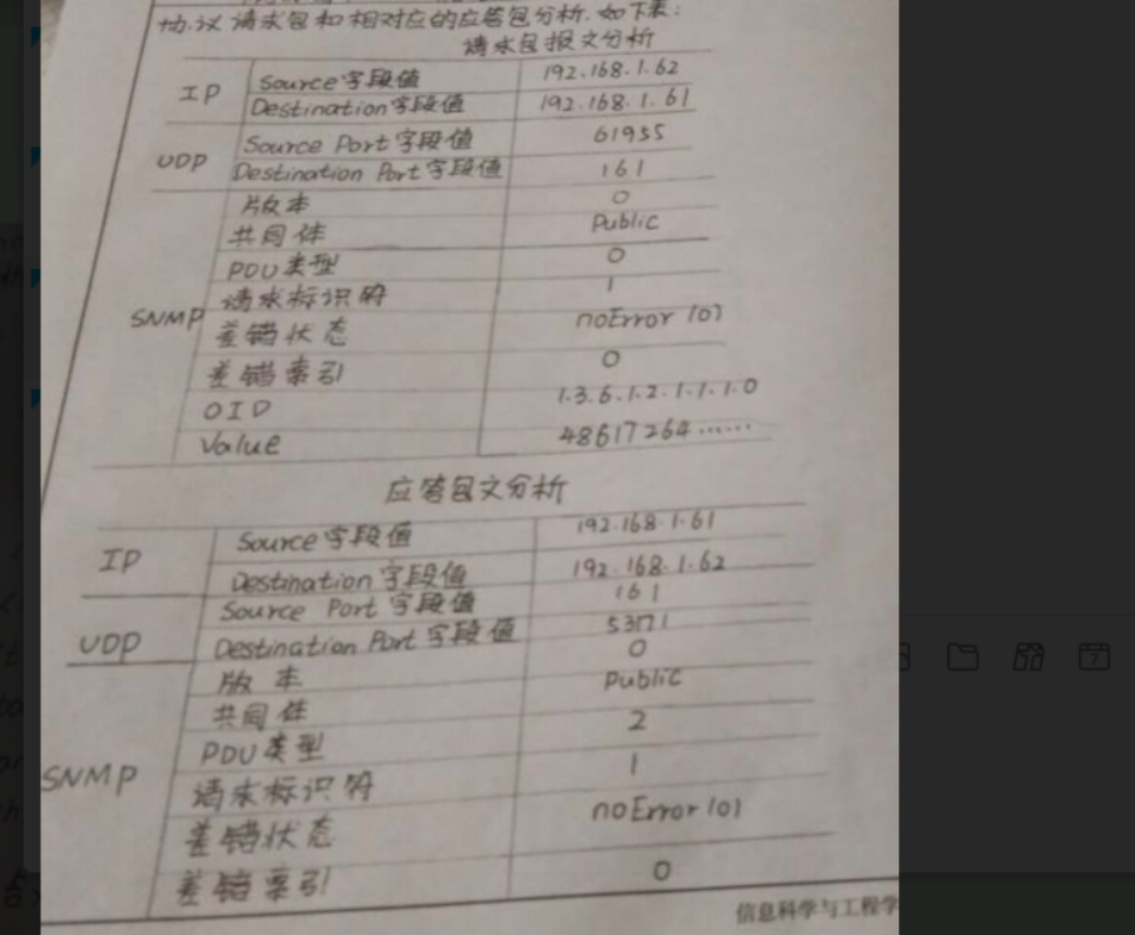 协议请求包和相对应的应答包分析.如下表:
请求包报文分析
IP Source字段值 192.168.1.62
Destination字段值 192.168.1.61
UDP Source Port字段值 61955
Destination Port字段值 161
版本 0
共同体 Public
PDU类型 0
请求标识符 1
SNMP 差错状态 noError(0)
差错索引 0
OID 1.3.6.1.2.1.1.1.0
Value 48617264……
应答包文分析
IP Source字段值 192.168.1.61
Destination字段值 192.168.1.62
UDP Source Port字段值 161
Destination Port字段值 53171
版本 0
共同体 Public
PDU类型 2
SNMP 请求标识符 1
差错状态 noError(0)
差错索引 0
信息科学与工程学